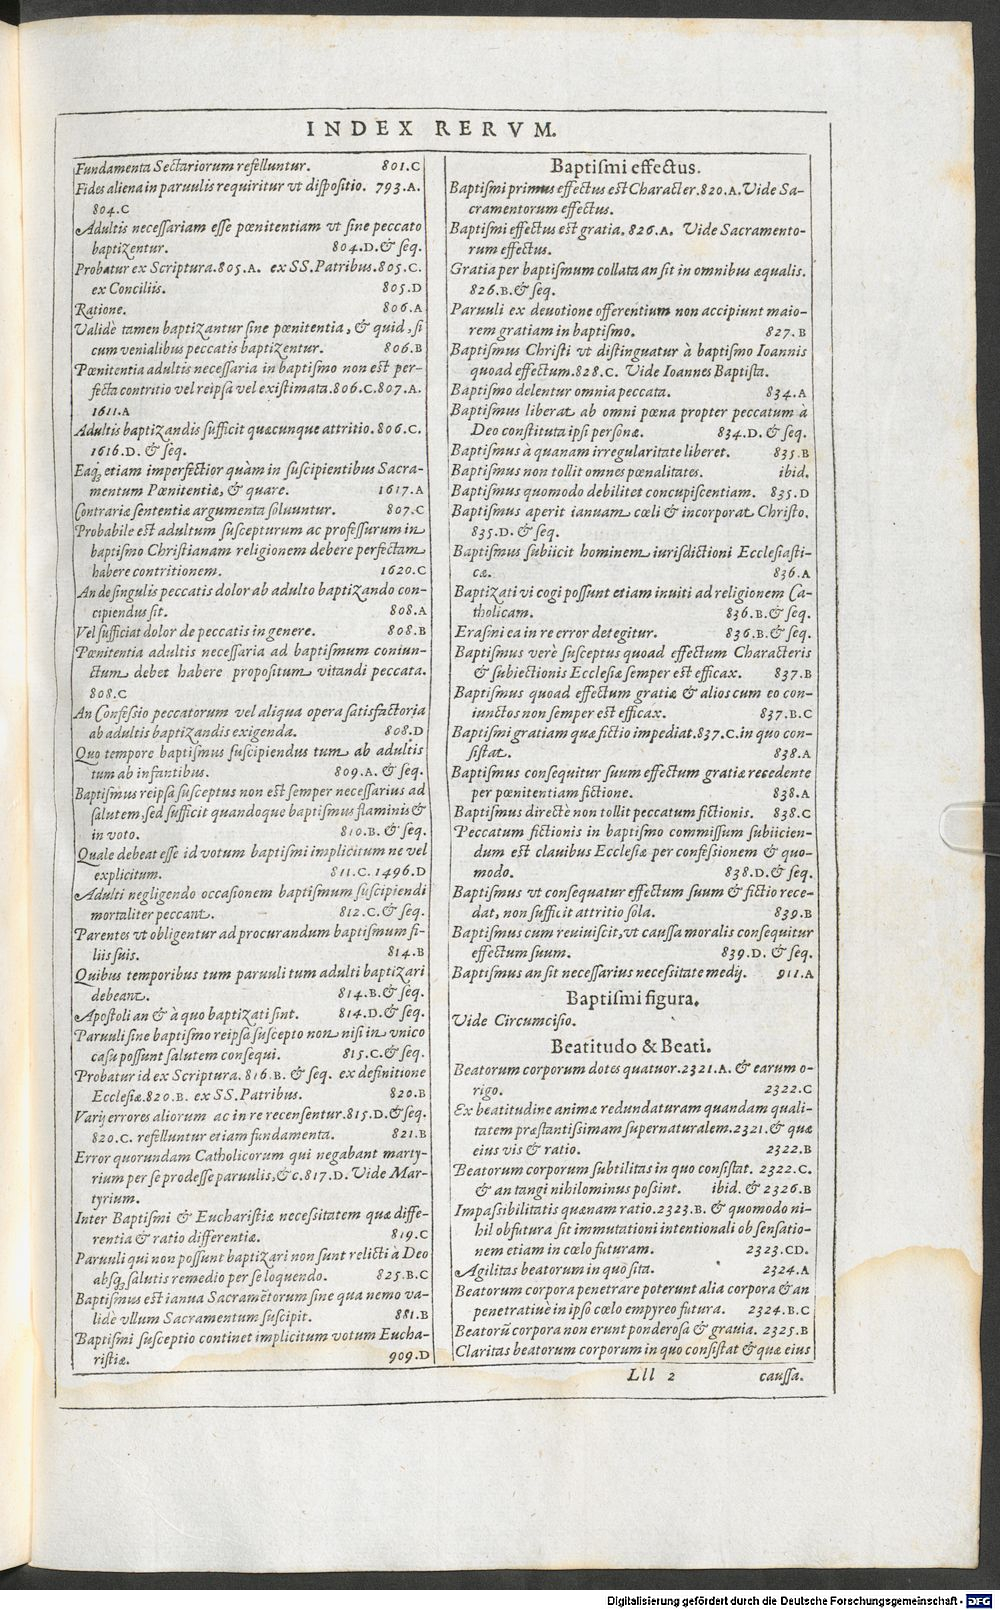 INDEX RERVM.
Fundamenta Sectariorum refelluntur. 801.C
Fides aliena in paruulis requiritur vt dispositio. 793.A.
804.C
Adultis necessariam esse pœnitentiam vt sine peccato
baptizentur. 804.D.& seq.
Probatur ex Scriptura.805.A. ex SS.Patribus.805.C.
ex Conciliis. 805.D
Ratione. 806.A
Validè tamen baptizantur sine pœnitentia, & quid, si
cum venialibus peccatis baptizentur. 806.B
Pœnitentia adultis necessaria in baptismo non est per-
fecta contritio vel reipsâ vel existimata.806.C.807.A.
1611.A
Adultis baptizandis sufficit quæcunque attritio.806.C.
1616.D. & seq.
Eaq; etiam imperfectior quàm in suscipientibus Sacra-
mentum Pœnitentiæ, & quare. 1617.A
Contrariæ sententiæ argumenta soluuntur. 807.C
Probabile est adultum suscepturum ac professurum in
baptismo Christianam religionem debere perfectam
habere contritionem. 1620.C
An de singulis peccatis dolor ab adulto baptizando con-
cipiendus sit. 808.A
Vel sufficiat dolor de peccatis in genere. 808.B
Pœnitentia adultis necessaria ad baptismum coniun-
ctum debet habere propositum vitandi peccata.
808.C
An Confessio peccatorum vel aliqua opera satisfactoria
ab adultis baptizandis exigenda. 808.D
Quo tempore baptismus suscipiendus tum ab adultis
tum ab infantibus. 809.A. & seq.
Baptismus reipsâ susceptus non est semper necessarius ad
salutem, sed sufficit quandoque baptismus flaminis &
in voto. 810.B. & seq.
Quale debeat esse id votum baptismi implicitum ne vel
explicitum. 811.C.1496.D
Adulti negligendo occasionem baptismum suscipiendi
mortaliter peccant. 812.C.& seq.
Parentes vt obligentur ad procurandum baptismum fi-
liis suis. 814.B
Quibus temporibus tum paruuli tum adulti baptizari
debeant. 814.B.& seq.
Apostoli an & à quo baptizati sint. 814.D.& seq.
Paruuli sine baptismo reipsâ suscepto non nisi in vnico
casu possunt salutem consequi. 815.C.& seq.
Probatur id ex Scriptura. 816.B. & seq. ex definitione
Ecclesiæ.820.B. ex SS.Patribus. 820.B
Varij errores aliorum ac in re recensentur.815.D.& seq.
820.C. refelluntur etiam fundamenta. 821.B
Error quorundam Catholicorum qui negabant marty-
rium per se prodesse paruulis,&c.817.D.Vide Mar-
tyrium.
Inter Baptismi & Eucharistiæ necessitatem quæ diffe-
rentia & ratio differentiæ. 819.C
Paruuli qui non possunt baptizari non sunt relicti à Deo
absq; salutis remedio per se loquendo. 825.B.C
Baptismus est ianua Sacramẽtorum sine qua nemo va-
lidè vllum Sacramentum suscipit. 881.B
Baptismi susceptio continet implicitum votum Eucha-
ristiæ. 909.D
Baptismi effectus.
Baptismi primus effectus est Character.820.A.Vide Sa-
cramentorum effectus.
Baptismi effectus est gratia.826.A. Vide Sacramento-
rum effectus.
Gratia per baptismum collata an sit in omnibus æqualis.
826.B.& seq.
Paruuli ex deuotione offerentium non accipiunt maio-
rem gratiam in baptismo. 827.B
Baptismus Christi vt distinguatur à baptismo Ioannis
quoad effectum.828.C. Vide Ioannes Baptista.
Baptismo delentur omnia peccata. 834.A
Baptismus liberat ab omni pœna propter peccatum à
Deo constituta ipsi personæ. 834.D. & seq.
Baptismus à quanam irregularitate liberet. 835.B
Baptismus non tollit omnes pœnalitates. ibid.
Baptismus quomodo debilitet concupiscentiam. 835.D
Baptismus aperit ianuam cœli & incorporat Christo.
835.D. & seq.
Baptismus subiicit hominem iurisdictioni Ecclesiasti-
cæ. 836.A
Baptizati vi cogi possunt etiam inuiti ad religionem Ca-
tholicam. 836.B.& seq.
Erasmi ea in re error detegitur. 836.B.& seq.
Baptismus verè susceptus quoad effectum Characteris
& subiectionis Ecclesiæ semper est efficax. 837.B
Baptismus quoad effectum gratiæ & alios cum eo con-
iunctos non semper est efficax. 837.B.C
Baptismi gratiam quæ fictio impediat.837.C.in quo con-
sistat. 838.A
Baptismus consequitur suum effectum gratiæ recedente
per pœnitentiam fictione. 838.A
Baptismus directè non tollit peccatum fictionis. 838.C
Peccatum fictionis in baptismo commissum subiicien-
dum est clauibus Ecclesiæ per confessionem & quo-
modo. 838.D.& seq.
Baptismus vt consequatur effectum suum & fictio rece-
dat, non sufficit attritio sola. 839.B
Baptismus cum reuiuiscit,vt caussa moralis consequitur
effectum suum. 839.D. & seq.
Baptismus an sit necessarius necessitate medij. 911.A
Baptismi figura.
Vide Circumcisio.
Beatitudo & Beati.
Beatorum corporum dotes quatuor.2321.A. & earum o-
rigo. 2322.C
Ex beatitudine animæ redundaturam quandam quali-
tatem præstantissimam supernaturalem.2321.& quæ
eius vis & ratio. 2322.B
Beatorum corporum subtilitas in quo consistat. 2322.C.
& an tangi nihilominus possint. ibid. & 2326.B
Impassibilitatis quænam ratio.2323.B. & quomodo ni-
hil obfutura sit immutationi intentionali ob sensatio-
nem etiam in cœlo futuram. 2323.CD.
Agilitas beatorum in quo sita. 2324.A
Beatorum corpora penetrare poterunt alia corpora & an
penetratiuè in ipso cœlo empyreo futura. 2324.B.C
Beatorũ corpora non erunt ponderosa & grauia. 2325.B
Claritas beatorum corporum in quo consistat & quæ eius
Lll 2 caussa.
Digitalisierung gefördert durch die Deutsche Forschungsgemeinschaft - DFG